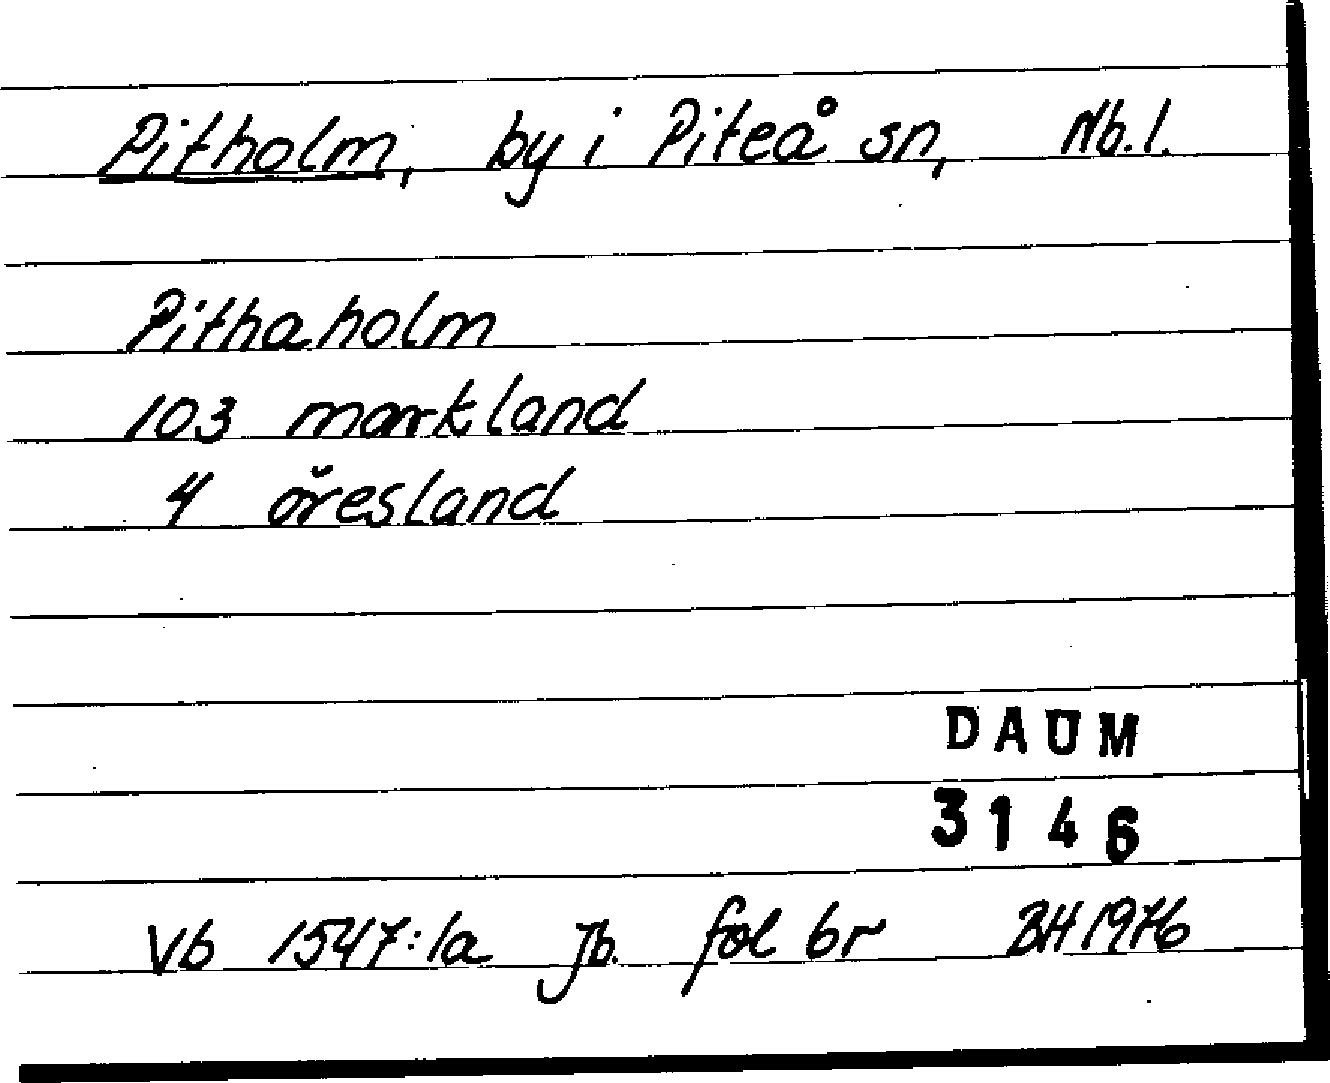 Pitholm, by i Piteå sn, Nb.l.
Pithaholm
103 markland
4 öresland
DAUM
3146
Vb 1547:1a Jb. fol 6r BH 1976